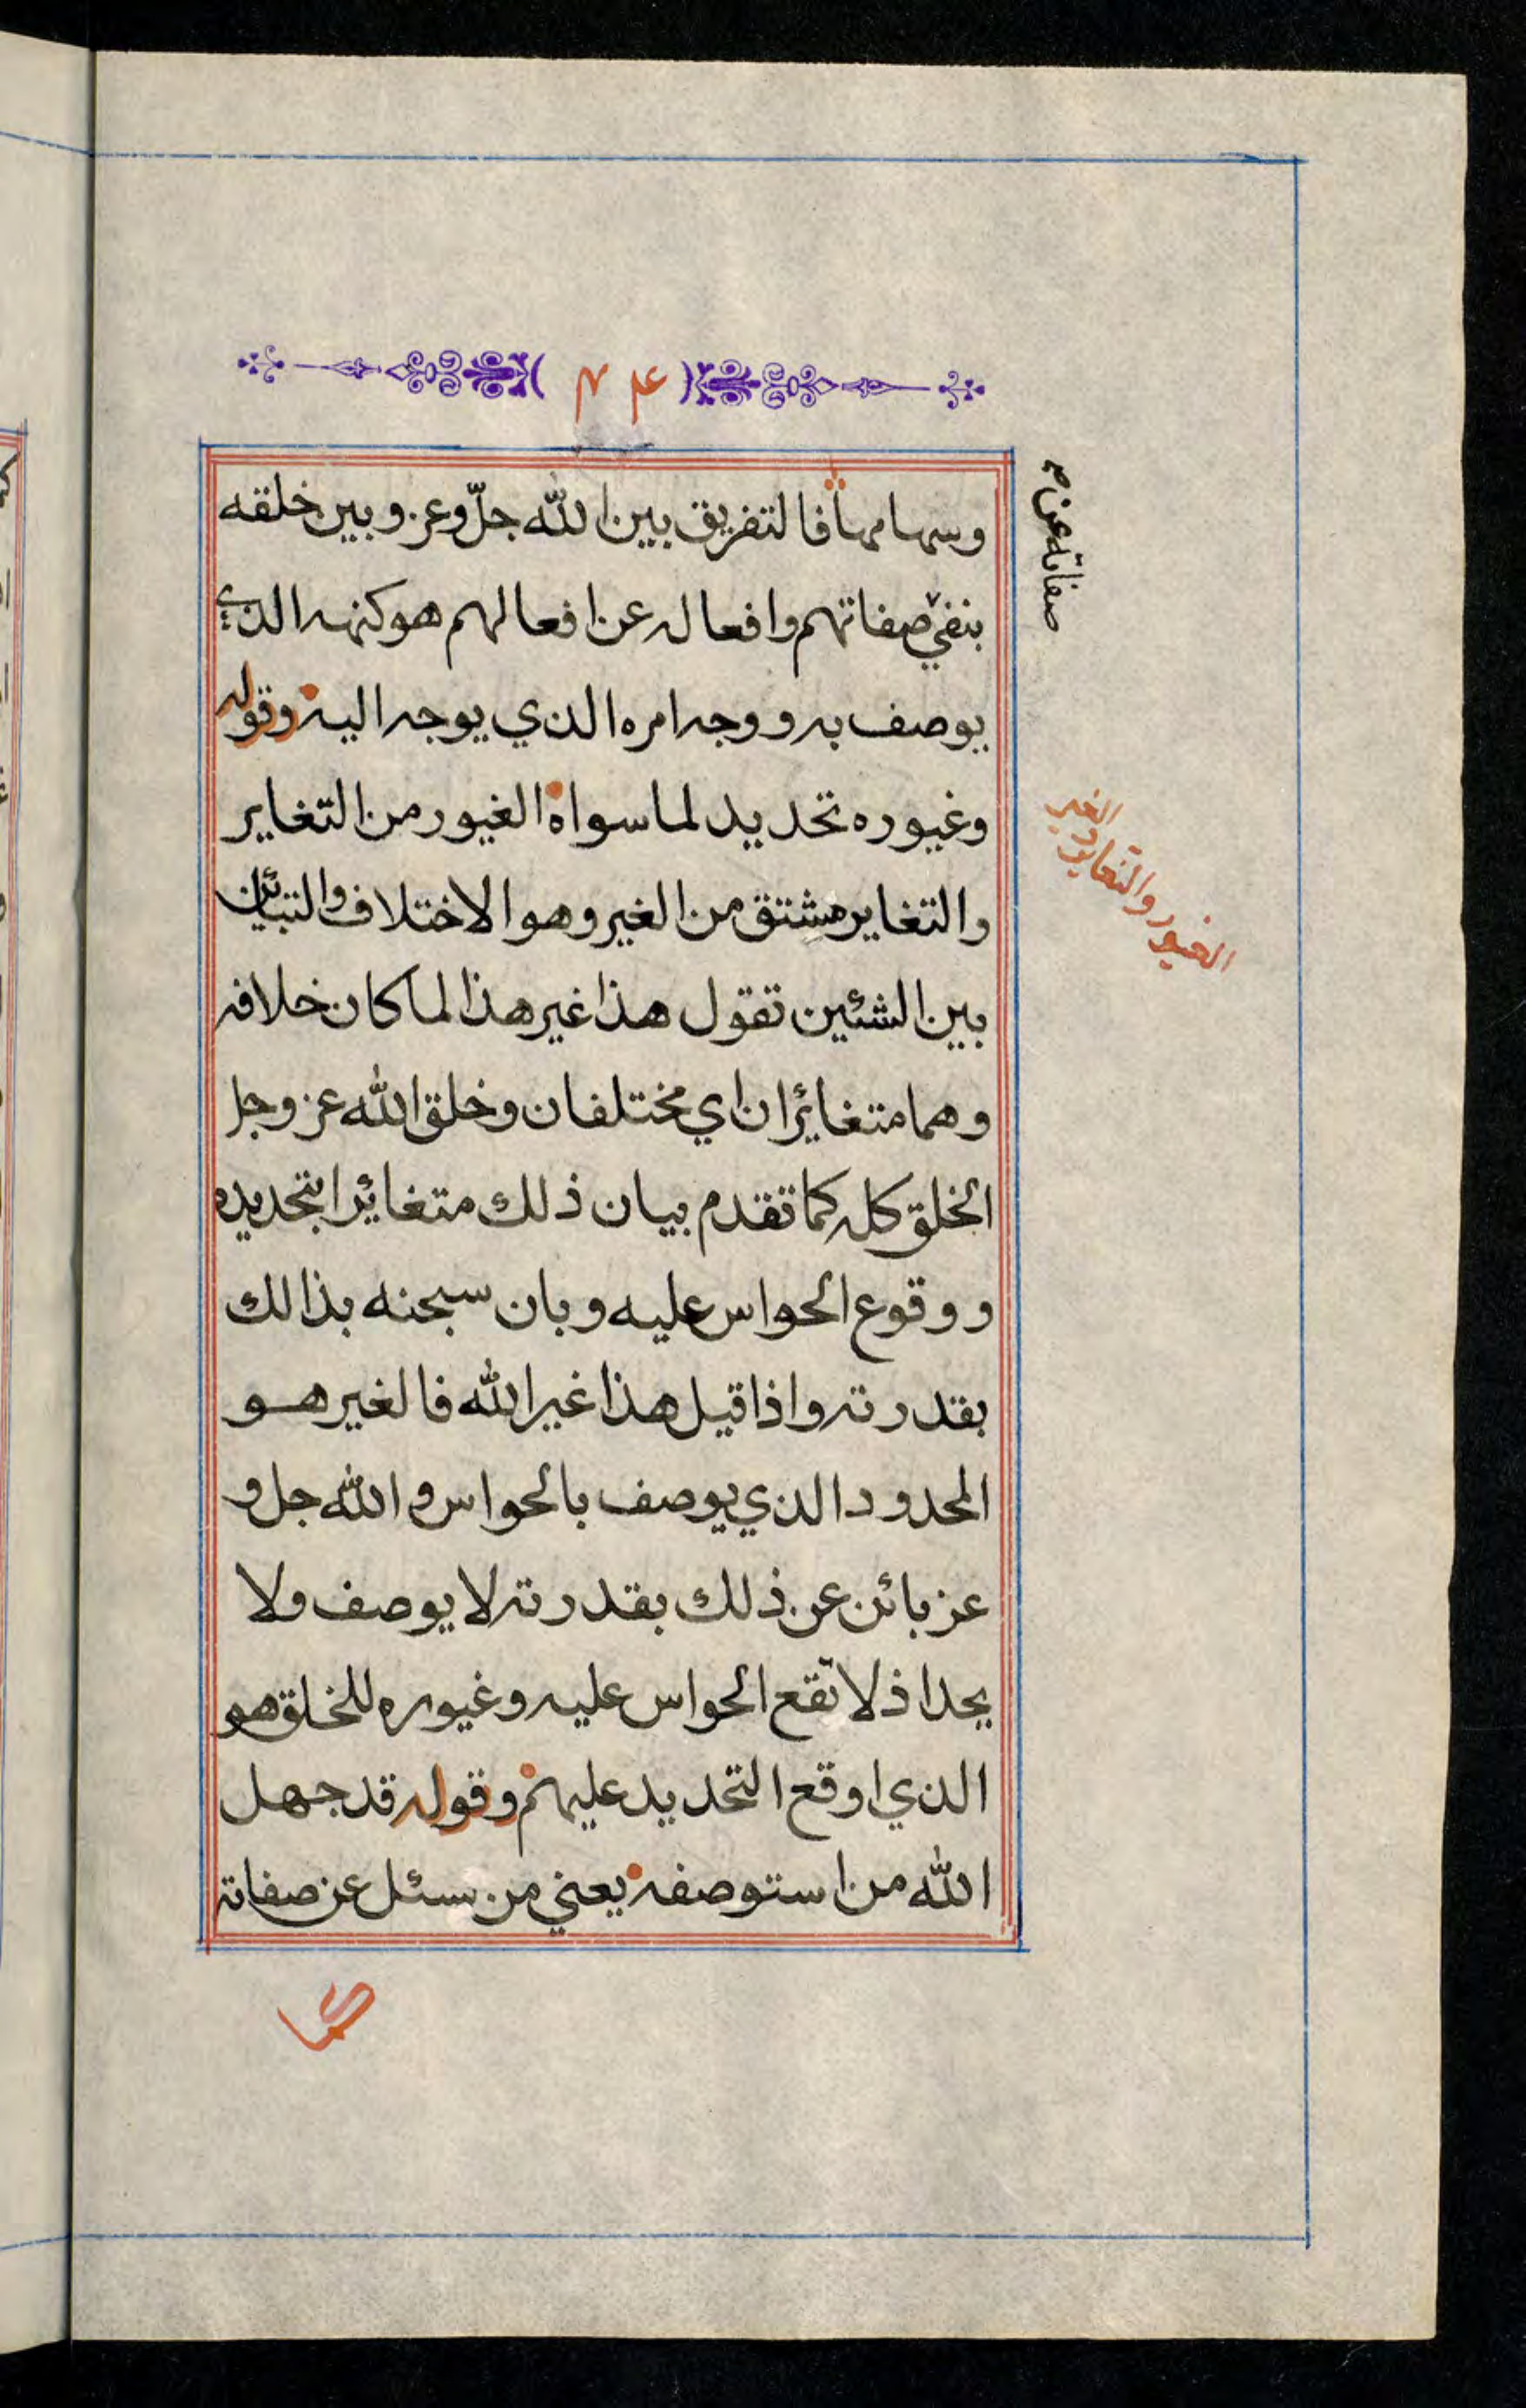 وسهامها فالتفريق بين الله جلّ وعز وبين خلقه
بنفي صفاتهم وافعاله عن افعالهم هو كنهه الذي
يوصف به ووجه امره الذي يوجه اليه وقوله
وغيوره تحديد لما سواه الغيور من التغاير
والتغاير مشتق من الغير وهو الاختلاف والتبائن
بين الشئين تقول هذا غير هذا لما كان خلافه
وهما متغائران اي مختلفان وخلق الله عز وجل
الخلق كله كما تقدم بيان ذلك متغائرا بتحديده
ووقوع الحواس عليه وبان سبحنه بذالك
بقدرته واذا قيل هذا غير الله فالغير هو
المحدود الذي يوصف بالحواس والله جل و
عز بائن عن ذلك بقدرته لا يوصف ولا
يحد اذ لا تقع الحواس عليه وغيوره للخلق هو
الذي اوقع التحديد عليهم وقوله قد جهل
الله من استوصفه يعني من سئل عن صفاته
صفاته عن
الغيور والتغاير والغير